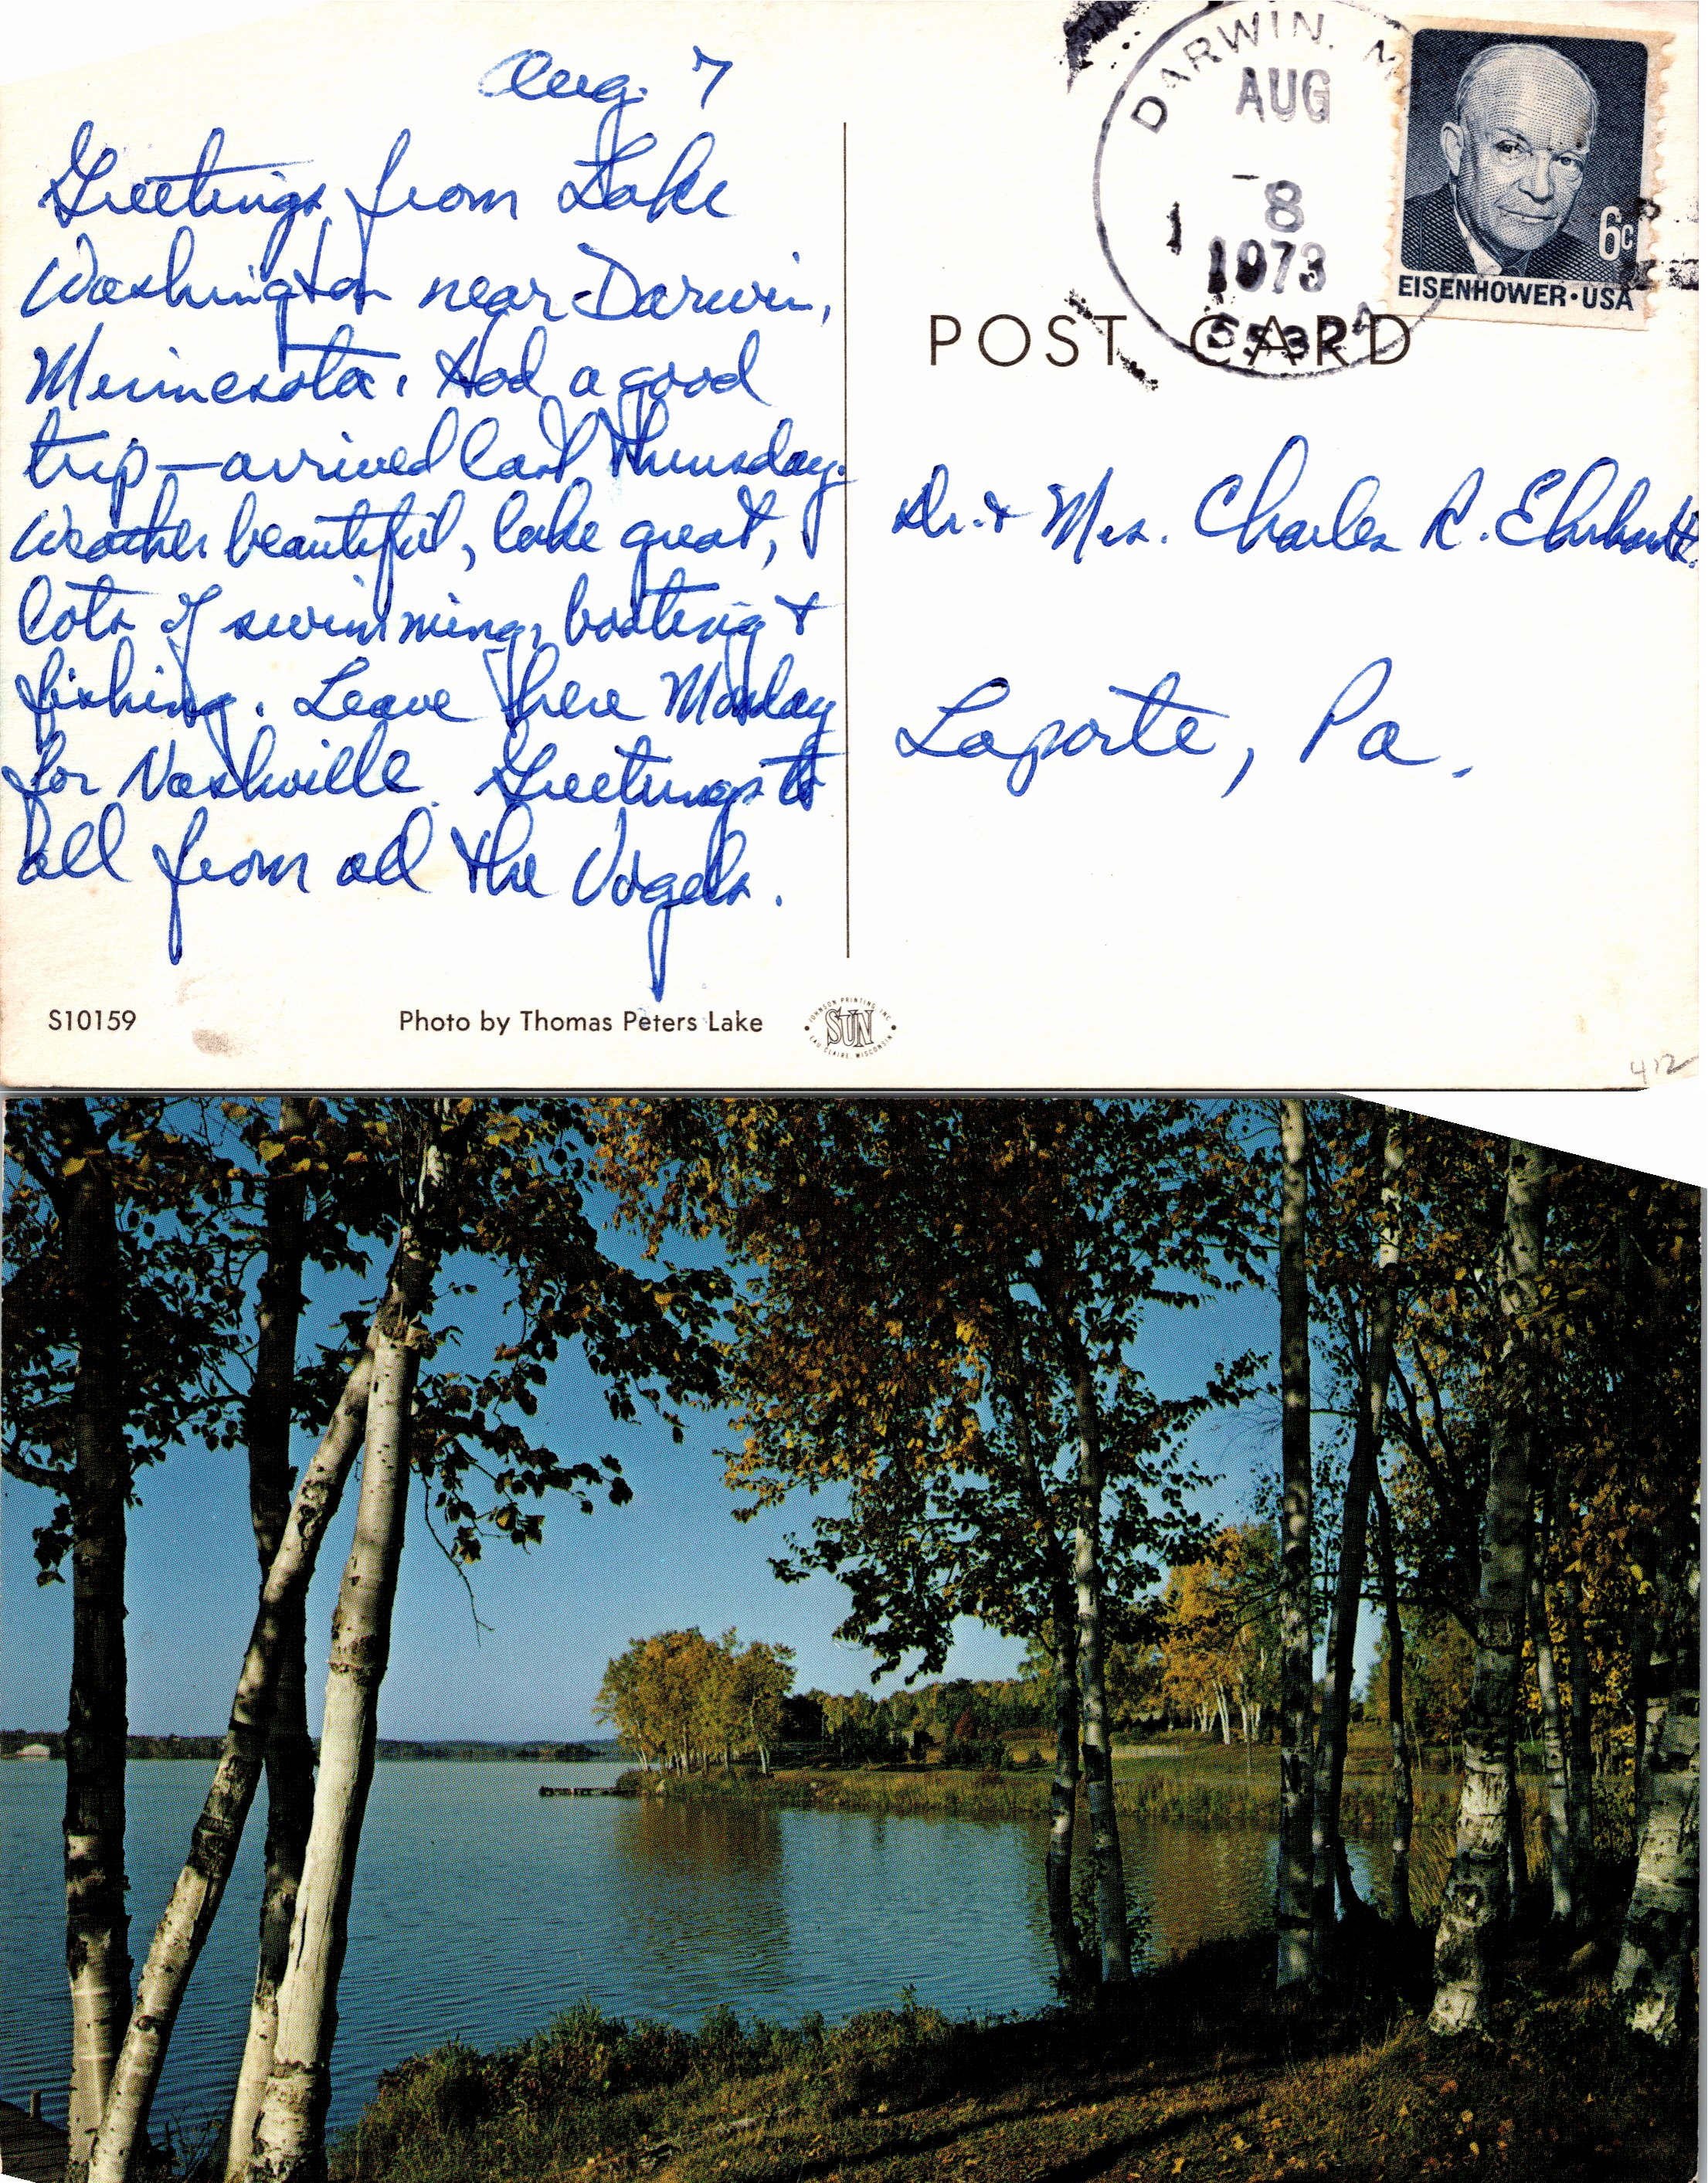 Aug. 7
Greetings from Lake
Washington near Darwin,
Minnesota. Had a good
trip—arrived last Thursday.
Weather beautiful, lake great,
lots of swimming, boating &
fishing. Leave here Monday
for Nashville. Greetings to
all from all the Vogels.
S10159
Photo by Thomas Peters Lake
JOHNSON PRINTING INC.
SUN
EAU CLAIRE, WISCONSIN
DARWIN, M
AUG
-8
1973
55324
6c
EISENHOWER·USA
POST CARD
Dr. & Mrs. Charles R. Ehrhardt
Laporte, Pa.
412